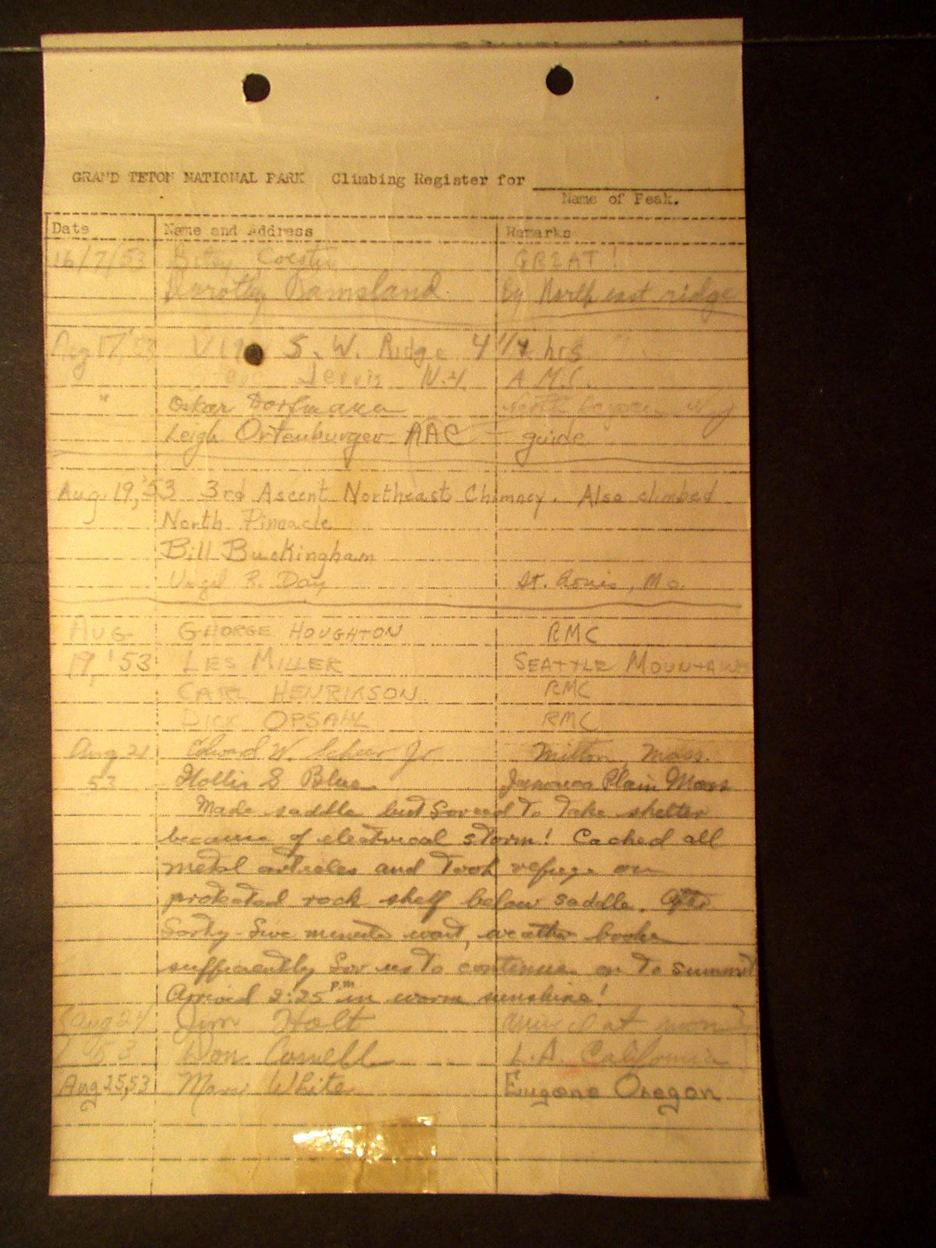 GRAND TETON NATIONAL PARK Climbing Register for
Name of Peak.
Date Name and Address Remarks
16/7/53 Betsy GREAT!
Dorothy By North east ridge
Aug 17, '53 Via S. W. Ridge 4 1/4 hrs
Steve Jervis N.Y. A.M.C.
" Oskar Dorfmann North N.J
Leigh Ortenburger AAC - guide
Aug. 19, '53 3rd Ascent Northeast Chimney. Also climbed
North Pinnacle
Bill Buckingham
Virgil R. Day St. Louis, Mo.
AUG GEORGE HOUGHTON RMC
19, '53 LES MILLER SEATTLE MOUNTAINEERS
CARL HENRIKSON RMC
DICK OPSAHL RMC
Aug 21 Edward W. Jr Milton, Mass.
53 Hollis S Blue Jamaica Plain Mass
Made saddle but forced to take shelter
because of electrical storm! Cached all
metal articles and took refuge on
protected rock shelf below saddle. After
forty-five minute wait, weather broke
sufficiently for us to continue on to summit
Arrived 2:25 pm in warm sunshine!
Aug 24 Jim Holt arrived at noon
53 Don L.A. California
Aug 25, 53 White Eugene Oregon